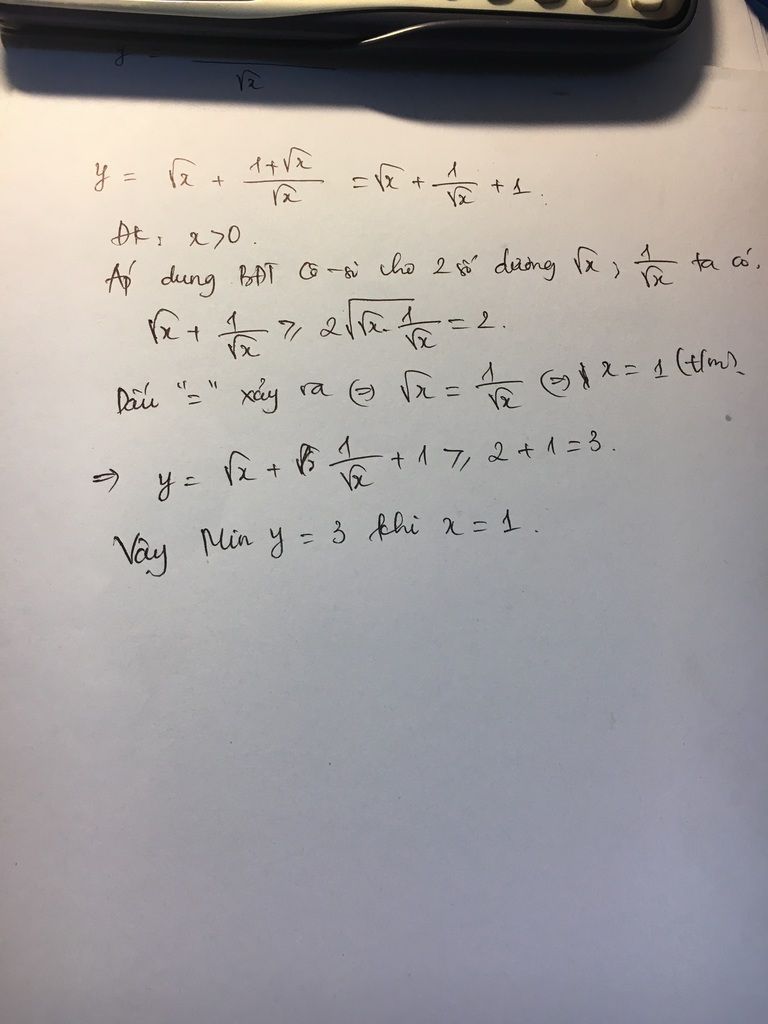 y = √x
y = √x + (1+√x)/√x = √x + 1/√x + 1.
ĐK: x>0.
Áp dụng BĐT Cô-si cho 2 số dương √x; 1/√x ta có.
√x + 1/√x ⩾ 2√(√x · 1/√x) = 2.
Dấu "=" xảy ra ⇔ √x = 1/√x ⇔ x = 1 (t/m).
⇒ y = √x + 1/√x + 1 ⩾ 2 + 1 = 3.
Vậy Min y = 3 khi x = 1.